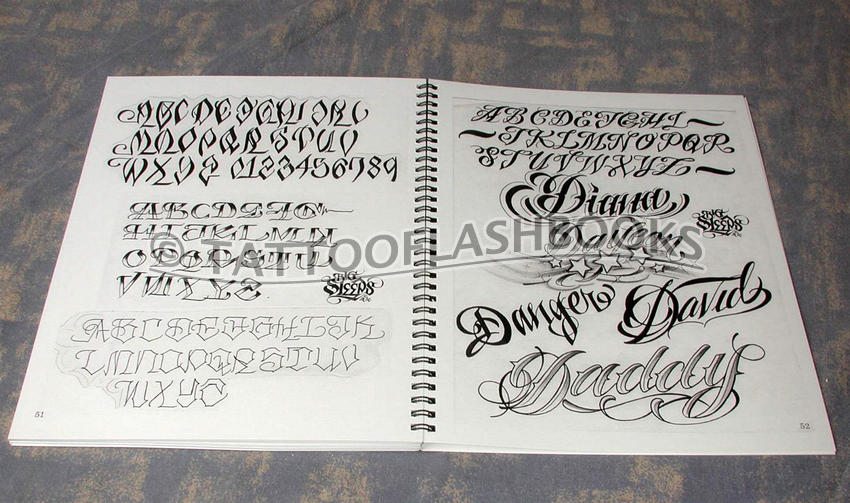 ABCDEFGHIJKL
MNOPQRSTUV
WXYZ 0123456789
ABCDEFG
HIJKLMN
OPQRSTU
VWXYZ
BIG
SLEEPS
ABCDEFGHIJK
LMNOPQRSTUV
WXYZ
51
ABCDEFGHI
JKLMNOPQR
STUVWXYZ
Diana
BIG
SLEEPS
Danger
David
Daddy
52
© TATTOOFLASHBOOKS